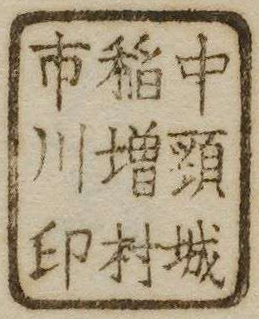 中頸城
稲増村
市川印